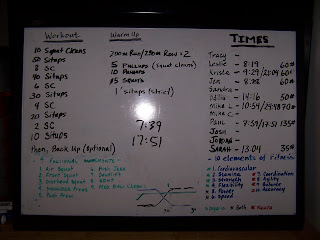 Workout
10 Squat Cleans
50 Situps
8 SC
40 Situps
6 SC
30 Situps
4 SC
20 Situps
2 SC
10 Situps
Then, Back Up (optional)
Warm Up
200m Run/250m Row x 2
5 Pullups (squat cleans)
10 Pushups
15 Squats
1' situps (strict)
7:39
17:51
TIMES
Tracy -
Leslie - 8:19 60#
Krista - 9:29/21:04 60#
Jen - 8:28
Sandra -
Emilia - 14:16 50#
Mike L - 10:54/24:48 70#
Mike C. -
Paul - 7:39/17:51 135#
Josh
Jordan -
Sarah - 13:04 35#
10 elements of fitness
1. Cardiovascular
2. Stamina
3. Strength
4. Flexibility
5. Power
6. Speed
7. Coordination
8. Agility
9. Balance
10. Accuracy
9 Functional Movements
1. Air Squat
2. Front Squat
3. Overhead Squat
4. Shoulder Press
5. Push Press
6. Push Jerk
7. Deadlift
8. SDHP
9. Med Ball Clean
Both